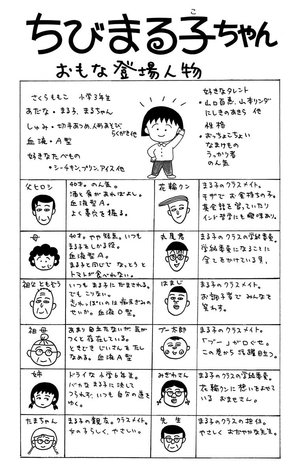 ちびまる子ちゃん
こ
おもな登場人物
さくらももこ 小学3年生
・あだな・まる子、まるちゃん
・しゅみ・切手あつめ、人形あそび
らくがき 他
・血液・A型
・好きなたべもの
・シーチキン、プリン、アイス 他
・好きなタレント
・山口百恵、山本リンダ
にしきのあきら 他
・性格
・おっちょこちょい
なまけもの
うっかり者
のん気
父ヒロシ
40才。のん気。
酒と食があればよし。
血液型A。
よく鼻穴を掘る。
母
40才。やや短気。いつも
まる子をしかる役。
血液型A。
まる子と同じで なっとうと
トマトが食べれない。
祖父ともぞう
いつも まる子にだまされる。
でもこりない。
忘れっぽいのは
せいか。血液O型。
祖母
あまり目立たないが 気が
つくと存在している。
ときどき じいさんをたし
なめる。血液A型
姉
ドライな小学6年生。
バカなまる子に決して
つられず、いつも自分の道を
ゆく。
たまちゃん
まる子の親友。クラスメイト。
女の子らしく、やさしい。
花輪クン
まる子のクラスメイト。
キザで お金持ちの子。
英会話を習っていたり
インド哲学にも興味あり。
丸尾君
まる子のクラスの学級委員。
学級委員になることに
全てをかけている男。
はまじ
まる子のクラスメイト。
お調子者で みんなを
笑わす。
ブー太郎
まる子のクラスメイト。
「ブー」が口ぐせ。
この巻から 活躍目立つ。
みぎわさん
まる子のクラスの学級委員。
花輪クンに想いをよせて
いる おませさん。
先生
まる子のクラスの担任。
やさしく おだやかな先生。